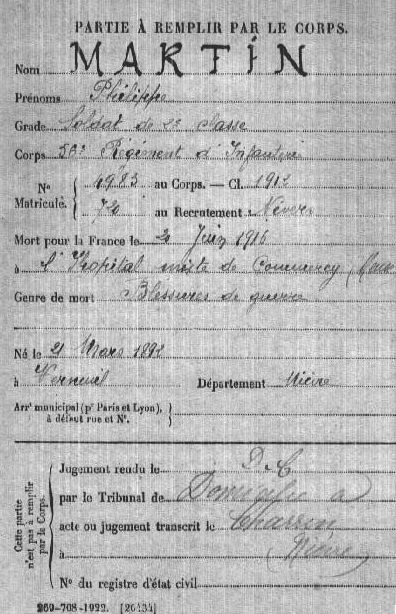 PARTIE À REMPLIR PAR LE CORPS.
Nom MARTIN
Prénoms Philippe
Grade Soldat de 2e classe
Corps 56e Régiment d'Infanterie
Nº Matricule. { 4983 au Corps. — Cl. 1912
72 au Recrutement Nevers
Mort pour la France le 2 Juin 1916
à l'Hôpital mixte de Commercy (Meuse
Genre de mort Blessures de guerre
Né le 21 Mars 1892
à Verneuil Département Nièvre
Arrt municipal (pr Paris et Lyon), }
à défaut rue et Nº.
Cette partie n'est pas à remplir par le Corps.
Jugement rendu le D C
par le Tribunal de
acte ou jugement transcrit le Charrin
à Nièvre
Nº du registre d'état civil
269-708-1922. [26434]